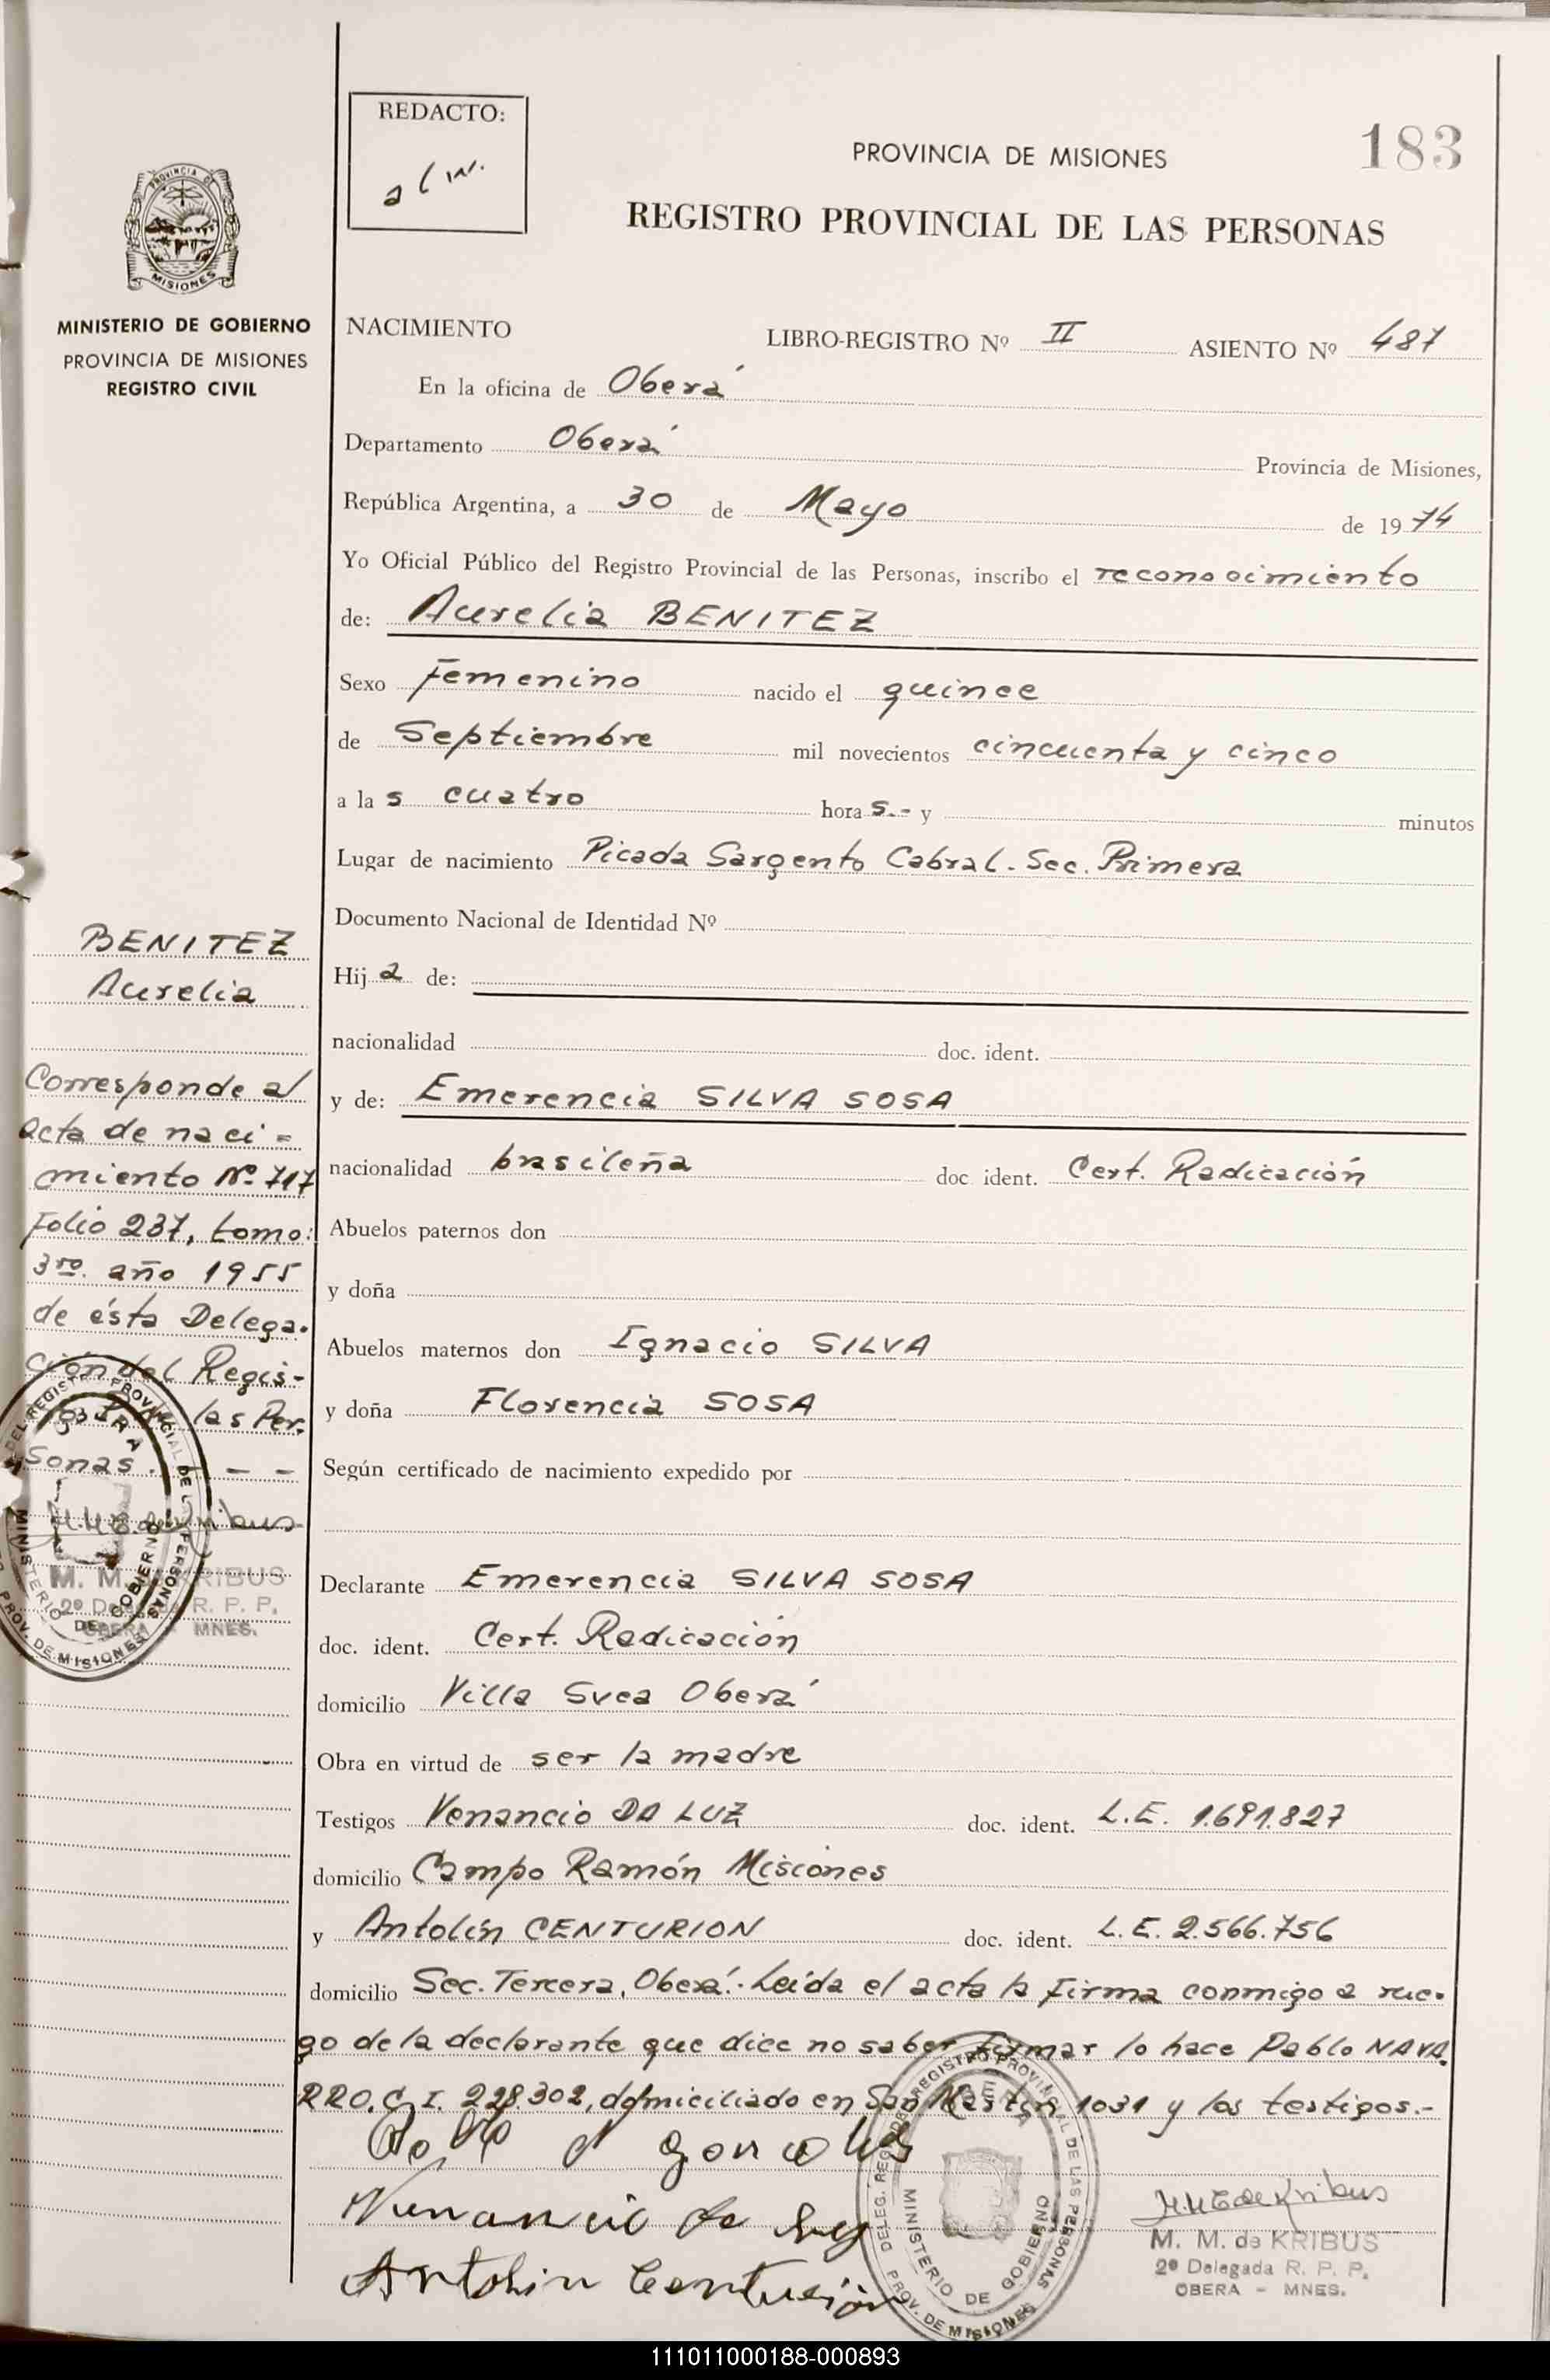 REDACTO:
183
PROVINCIA DE MISIONES
REGISTRO PROVINCIAL DE LAS PERSONAS
PROVINCIA DE
MISIONES
MINISTERIO DE GOBIERNO
PROVINCIA DE MISIONES
REGISTRO CIVIL
NACIMIENTO LIBRO-REGISTRO Nº II ASIENTO Nº 487
En la oficina de Oberá
Departamento Oberá Provincia de Misiones,
República Argentina, a 30 de Mayo de 1974
Yo Oficial Público del Registro Provincial de las Personas, inscribo el reconocimiento
de: Aurelia BENITEZ
Sexo Femenino nacido el quince
de Septiembre mil novecientos cincuenta y cinco
a las cuatro horas.- y minutos
Lugar de nacimiento Picada Sargento Cabral. Sec. Primera
Documento Nacional de Identidad Nº
Hija de:
nacionalidad doc. ident.
y de: Emerencia SILVA SOSA
nacionalidad brasileña doc ident. Cert. Radicación
Abuelos paternos don
y doña
Abuelos maternos don Ignacio SILVA
y doña Florencia SOSA
Según certificado de nacimiento expedido por
Declarante Emerencia SILVA SOSA
doc. ident. Cert. Radicación
domicilio Villa Svea Oberá
Obra en virtud de ser la madre
Testigos Venancio DA LUZ doc. ident. L.E. 1.691.827
domicilio Campo Ramón Misiones
y Antolín CENTURION doc. ident. L.E. 2.566.756
domicilio Sec. Tercera, Oberá.- Leída el acta la firma conmigo a rue-
go de la declarante que dice no saber firmar lo hace Pablo NAVA
RRO. C.I. 228.302, domiciliado en San Martín 1031 y los testigos.-
Antolin Centurión
M. M. de KRIBUS
2º Delegada R. P. P.
OBERA - MNES.
DELEG. REG. DEL REGISTRO PROVINCIAL DE LAS PERSONAS
MINISTERIO DE GOBIERNO
PROV. DE MISIONES
BENITEZ
Aurelia
Corresponde al
acta de naci=
miento Nº 717
Folio 237, tomo:
3ro. año 1955
de ésta Delega.
ción del Regis-
las Per.
sonas. - - -
M. M. de KRIBUS
2º Delegada R. P. P.
OBERA - MNES.
DEL REGISTRO PROVINCIAL DE LAS PERSONAS
MINISTERIO DE GOBIERNO
PROV. DE MISIONES
111011000188-000893